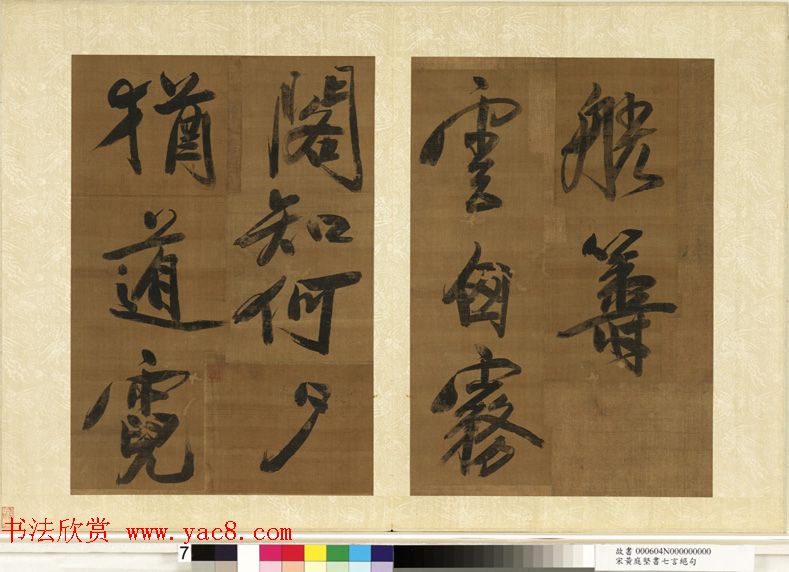 雲囪霧
閣知何夕
猶道霓
书法欣赏 www.yac8.com
7
故書 000604N000000000
宋黃庭堅書七言絕句